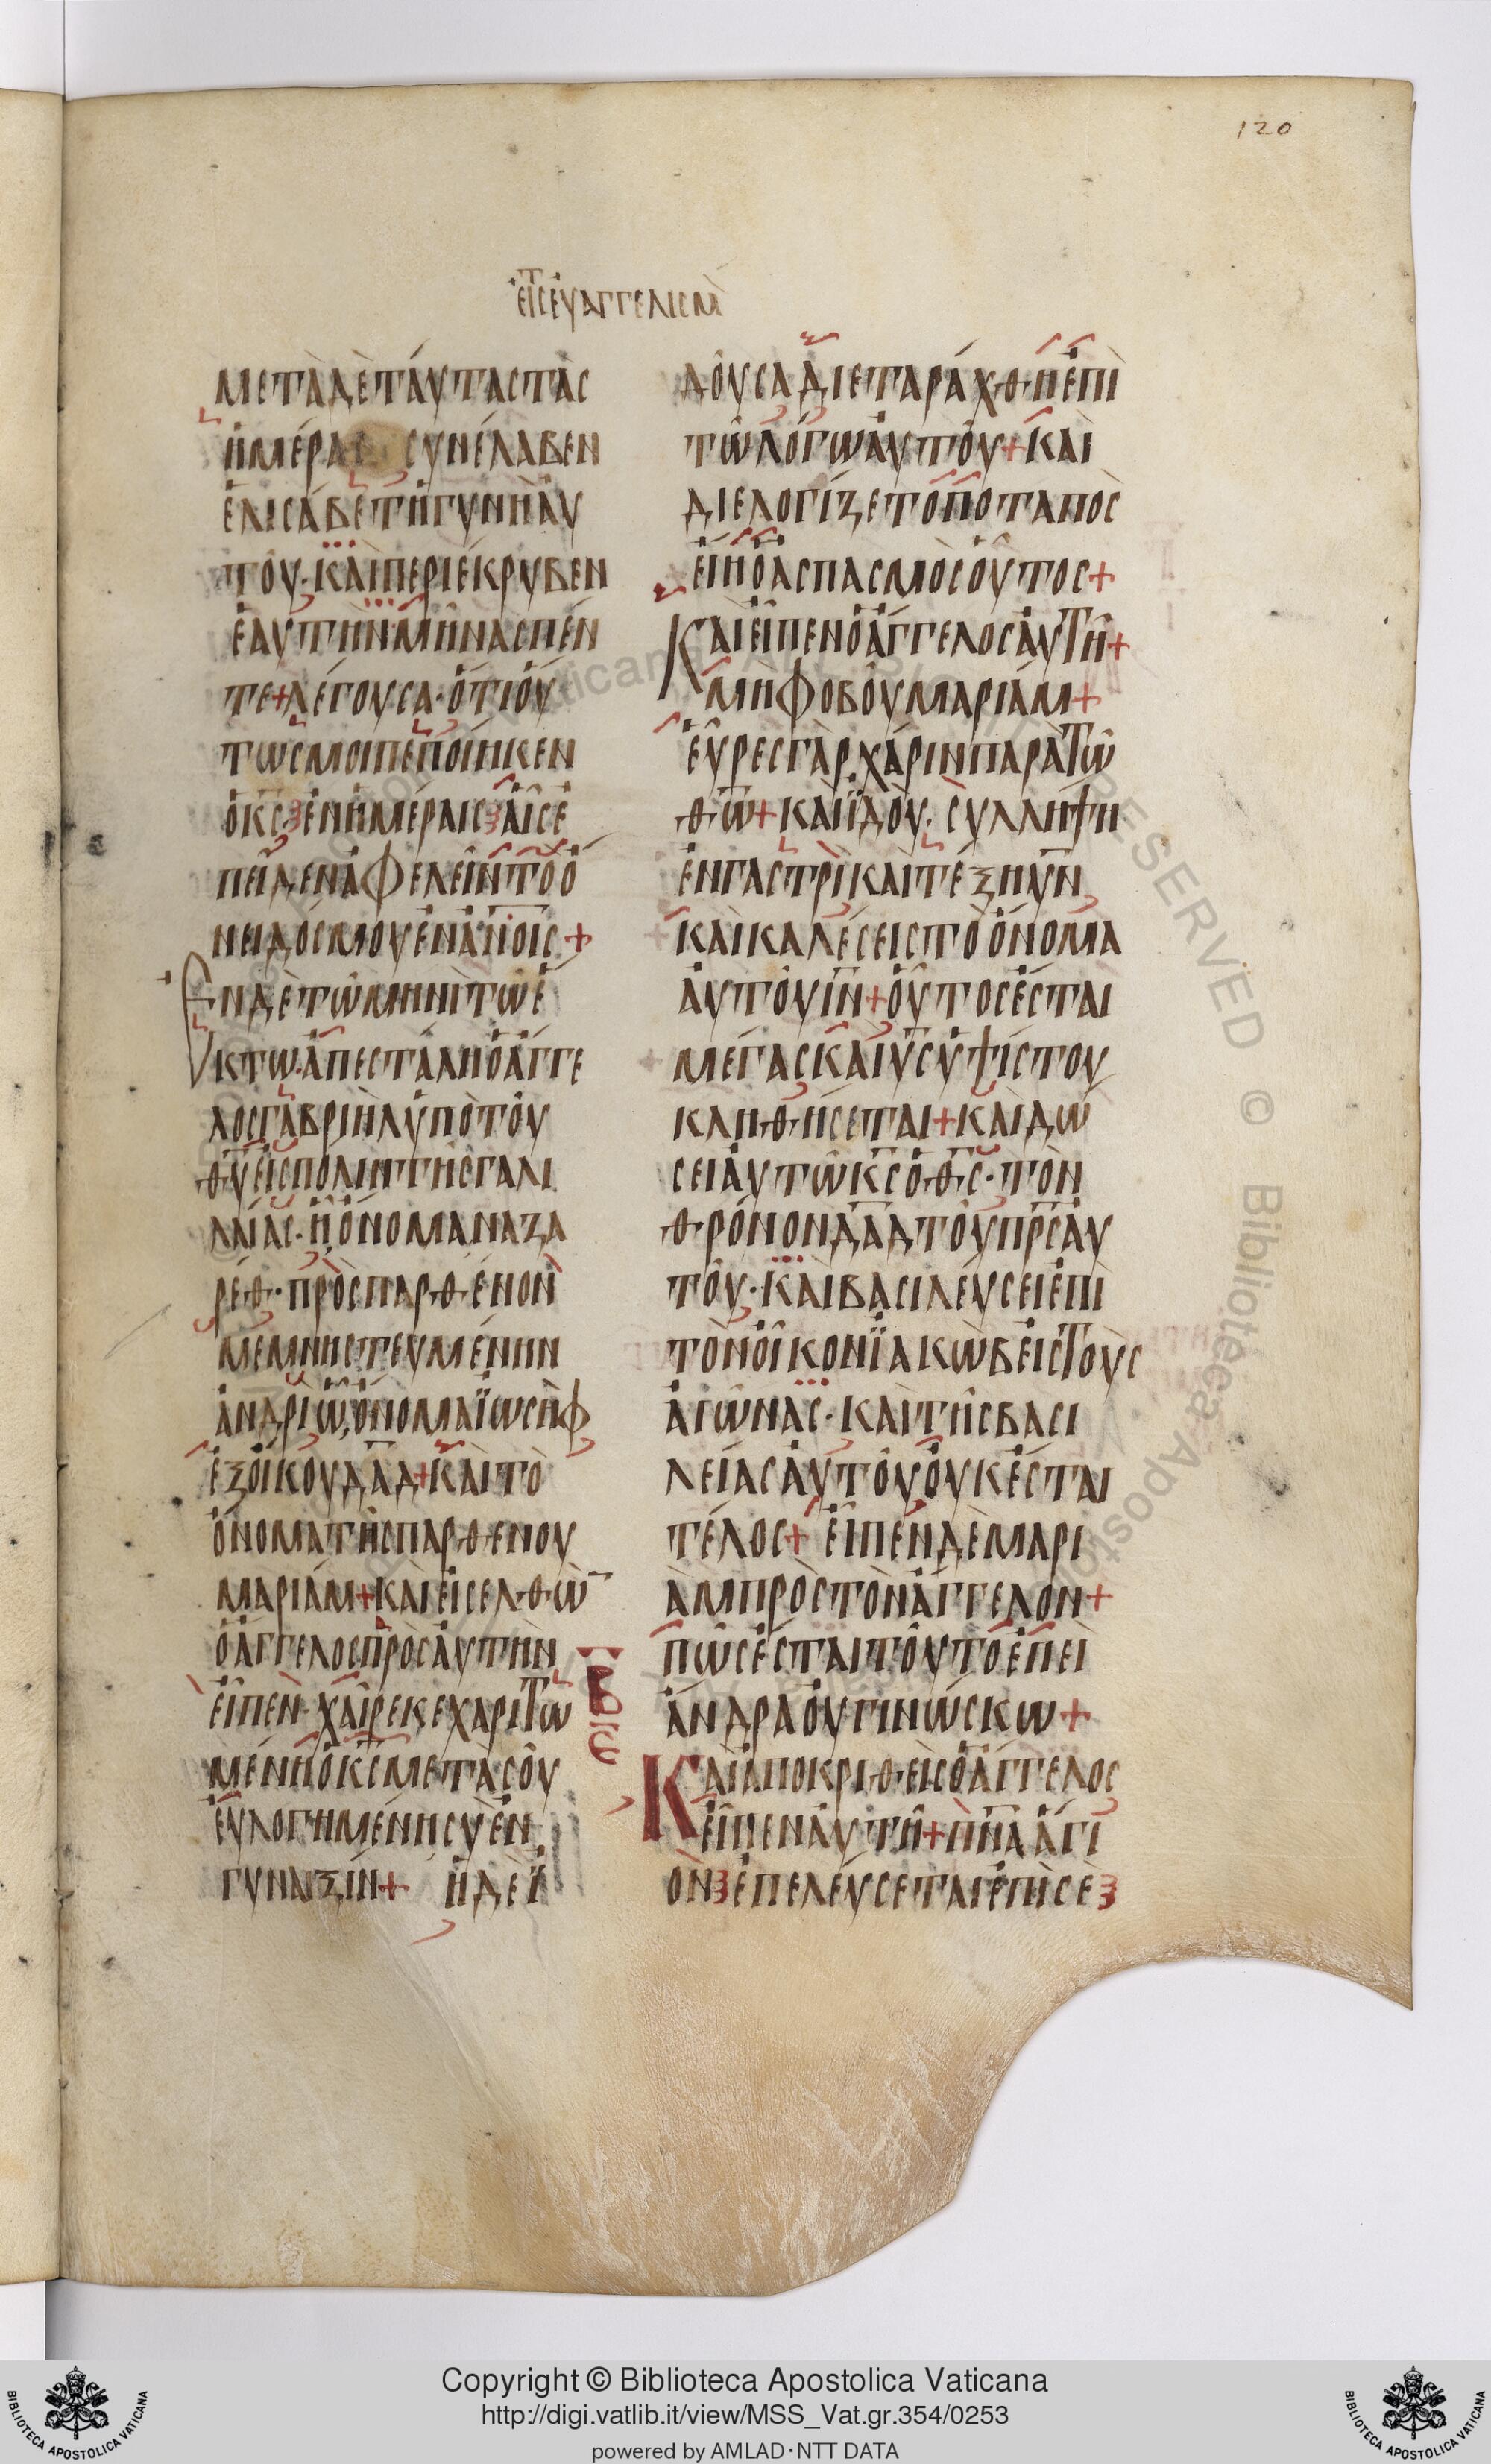 120
εις ευαγγελισμ
μετὰ δὲ τάυτας τὰς
ἡμέρας συνέλαβεν
ἐλισάβετ ἡ γυνὴ ἀυ
τοῦ· κὰι περιέκρυβεν
ἑαυτὴν· μῆνας πέν
τε + λέγουσα· ὅτι ὅυ
τως μοι πεποίηκεν
ὁ κς ἐν ἡμέραις ἁῖς ἐ
πεῖδεν ἀφελεῖν τὸ ὄ
νειδός μου ἐν ἀνοις +
Εν δὲ τῶ μηνὶ τῶ ἕ
κτω· ἀπεστάλη ὁ ἄγγε
λος γαβριὴλ ὑπὸ τοῦ
θυ εἰς πόλιν τῆς γαλι
λαίας· ἧ ὄνομα ναζα
ρέθ· πρὸς παρθένον
μεμνηστευμένην
ἀνδρὶ ὧ ὄνομα ϊωσὴφ
ἐξ ὄικου δαδ + κὰι τὸ
ὄνομα τῆς παρθενου
μαριάμ + κὰι εἰσελθὼ
ὁ ἄγγελος πρὸς ἀυτὴν
εἶπεν· χᾶιρε κεχαριτω
μένη ὁ κς μετὰ σοῦ
ἐυλογημένη σὺ ἐν
γυναιξίν + ἡ δὲ ϊ
δοῦσα διεταράχθη ἐπὶ
τῶ λόγω ἀυτοῦ + κὰι
διελογίζετο ποταπὸς
εἴη ὁ ἀσπασμὸς ὁῦτος +
Κὰι εἶπεν ὁ ἄγγελος ἀυτῆ +
μὴ φοβοῦ μαριάμ +
ἑῦρες γὰρ χάριν παρὰ τῶ
θω + κὰι ϊδὸυ· συλλήψη
ἐν γαστρὶ κὰι τέξη υν
κὰι καλέσεις τὸ ὄνομα
ἀυτοῦ ιν + ὁῦτος ἔσται
μέγας κὰι υς ὑψίστου
κληθήσεται + κὰι δώ
σει ἀυτῶ κς ὁ θς· τὸν
θρόνον δαδ τοῦ πρς ἀυ
τοῦ· κὰι βασιλέυσει ἐπὶ
τὸν ὁῖκον ϊακὼβ εἰς τοὺς
ἀιῶνας· κὰι τῆς βασι
λείας ἀυτοῦ ὀυκ ἔσται
τέλος + εἶπεν δὲ μαρι
ὰμ πρὸς τὸν ἄγγελον +
πῶς ἔσται τοῦτο ἐπεὶ
ἄνδρα ὀυ γινώσκω +
Κὰι ἀποκριθεὶς ὁ ἄγγελος
εἶπεν ἀυτῆ + πνα ἅγι
ον ἐπελέυσεται ἐπὶ σὲ
Copyright © Biblioteca Apostolica Vaticana
http://digi.vatlib.it/view/MSS_Vat.gr.354/0253
powered by AMLAD·NTT DATA
BIBLIOTECA APOSTOLICA VATICANA
BIBLIOTECA APOSTOLICA VATICANA